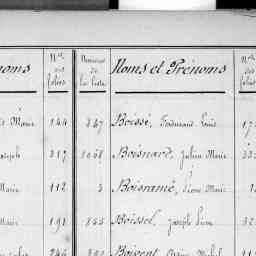 noms | Nos des folios | Numéros de la liste | Noms et Prénoms | Nos des folios
Marie | 144 | 347 | Boissé, Ferdinand Louis | 17
Joseph | 317 | 1068 | Boisnard, Julien Marie | 33
Marie | 112 | 3 | Boisramé, Pierre Marie | 1
Marie | 191 | 845 | Boissel, Joseph Pierre | 32
246 | Boivent, Michel | 11